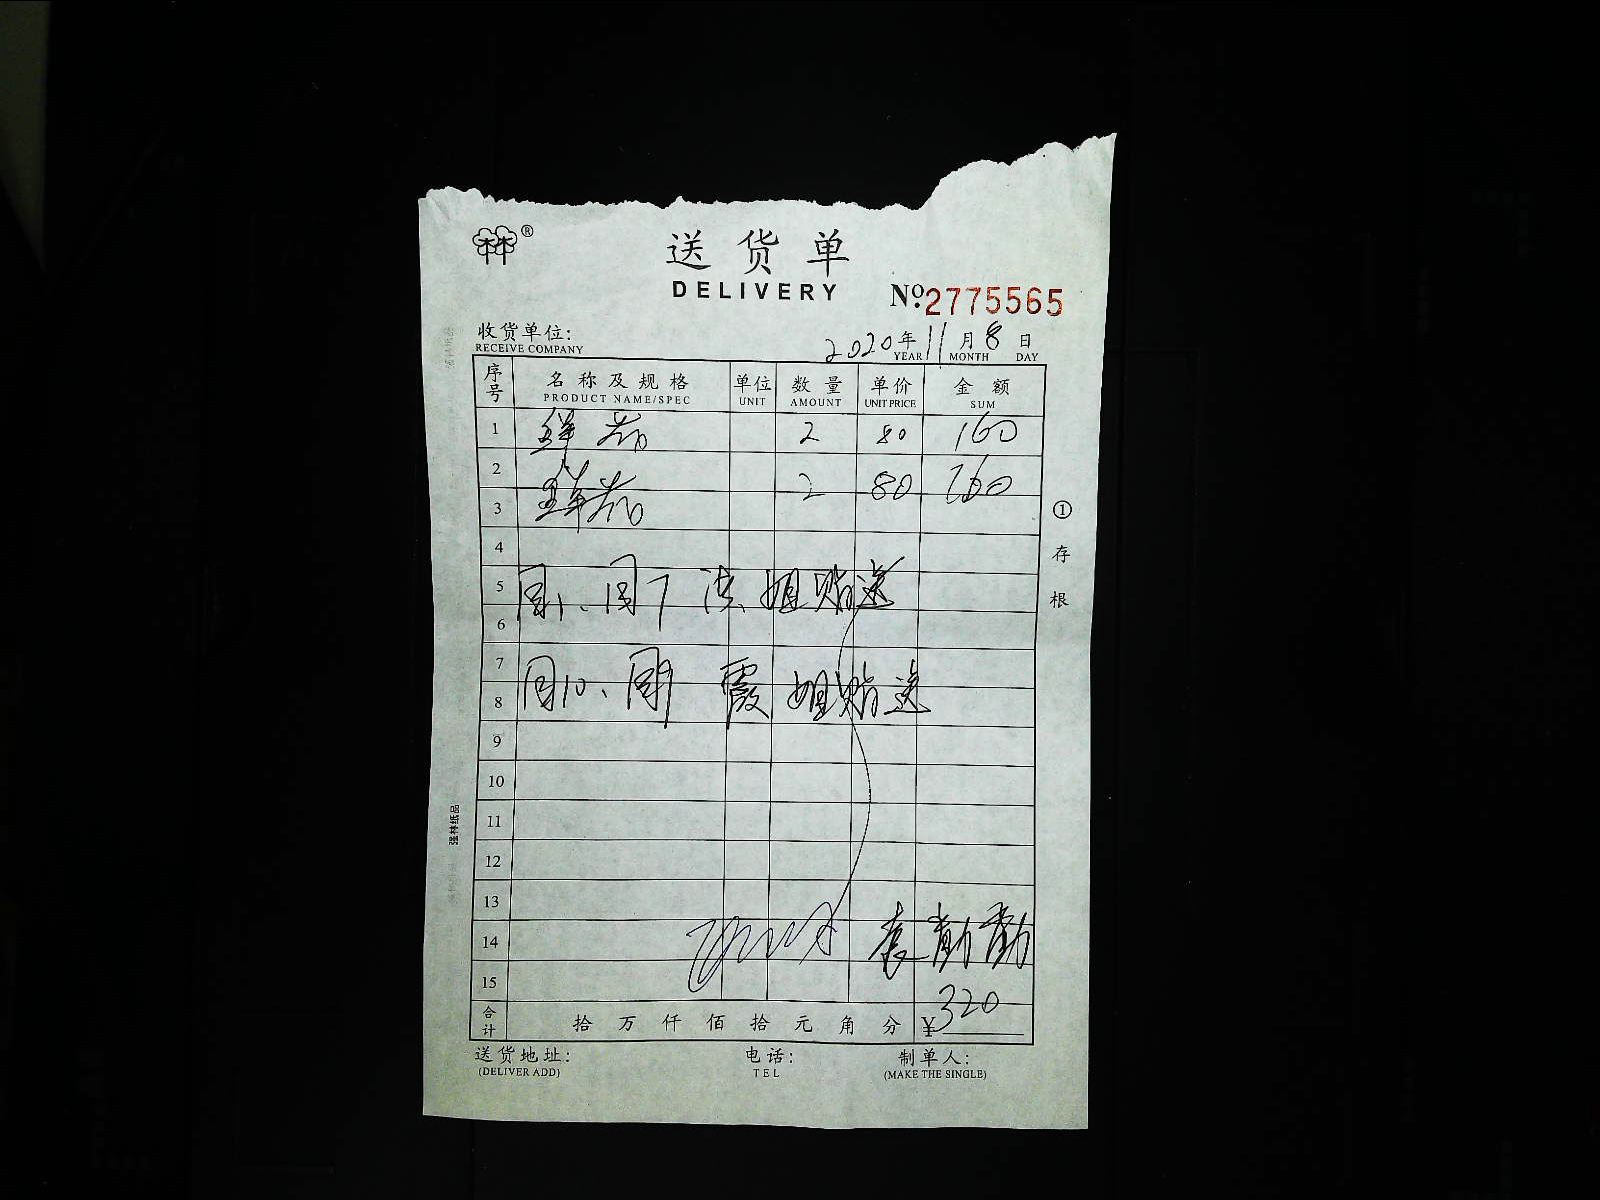 林®
送货单
DELIVERY
№2775565
收货单位:
RECEIVE COMPANY
2020年11月8日
YEAR MONTH DAY
序号 名称及规格 单位 数量 单价 金额
PRODUCT NAME/SPEC UNIT AMOUNT UNIT PRICE SUM
1 鲜花 2 80 160
2 鲜花 2 80 160
3
4
5 姐贈送
6
7
8 霞姐贈送
9
10
11
12
13
14
15
合计 拾万仟佰拾元角分 ¥320
送货地址: 电话: 制单人:
(DELIVER ADD) TEL (MAKE THE SINGLE)
①存根
强林纸品